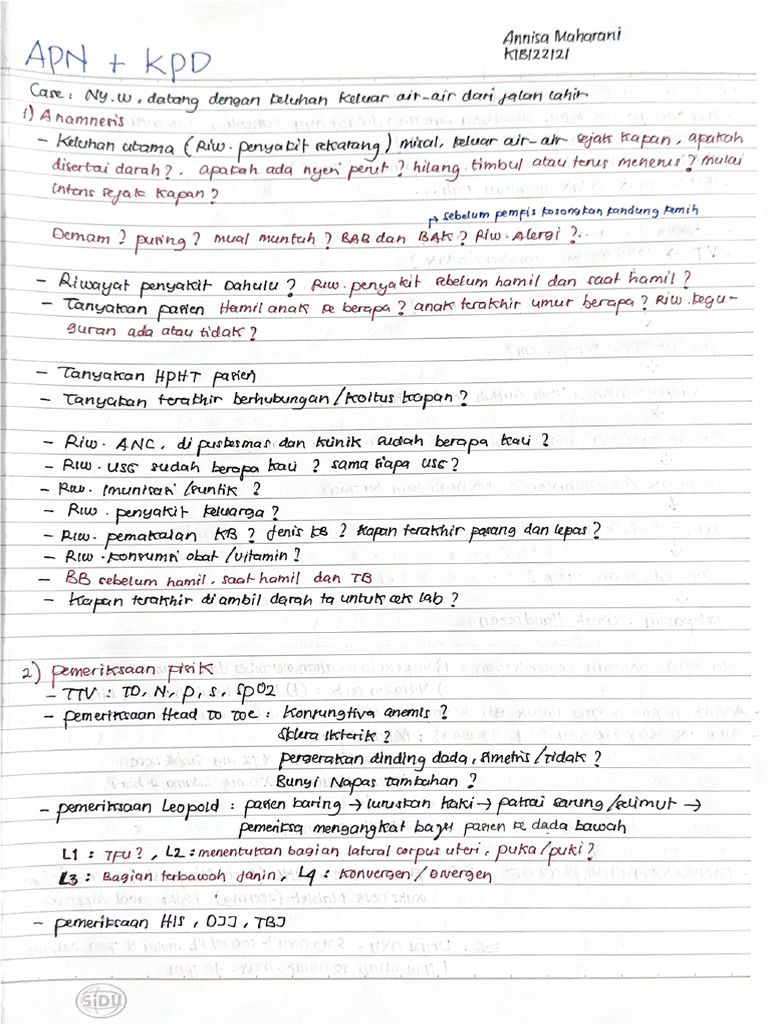 Annisa Maharani
K1B122121
APN + KPD
Case : Ny. W . datang dengan keluhan keluar air-air dari jalan lahir
1) Anamnesis
- Keluhan utama (Riw. penyakit sekarang) misal, keluar air-air sejak kapan, apakah
disertai darah ?. apakah ada nyeri perut ? hilang timbul atau terus menerus ? mulai
intens sejak kapan ?
↳ sebelum pempis kosongkan kandung kemih
Demam ? pusing ? mual muntah ? BAB dan BAK ? Riw. Alergi ?..
- Riwayat penyakit Dahulu ? Riw. penyakit sebelum hamil dan saat hamil ?
- Tanyakan pasien Hamil anak ke berapa ? anak terakhir umur berapa ? Riw. kegu-
guran ada atau tidak ?
- Tanyakan HPHT pasien
- Tanyakan terakhir berhubungan/koitus kapan ?
- Riw. ANC, di puskesmas dan klinik sudah berapa kali ?
- Riw. USG sudah berapa kali ? sama siapa USG ?
- Riw. Imunisasi /suntik ?
- Riw. penyakit keluarga ?
- Riw. pemakaian KB ? Jenis KB ? kapan terakhir pasang dan lepas ?
- Riw. konsumsi obat /vitamin ?
- BB sebelum hamil, saat hamil dan TB
- Kapan terakhir diambil darah ta untuk cek lab ?
2) pemeriksaan fisik
- TTV : TD, N, P, S, SpO2
- pemeriksaan Head to toe : Konjungtiva anemis ?
Sklera ikterik ?
pergerakan dinding dada, simetris/tidak ?
Bunyi Napas tambahan ?
- pemeriksaan Leopold : pasien baring → luruskan kaki → pakai sarung /selimut →
pemeriksa mengangkat baju pasien ke dada bawah
L1 : TFU ? , L2 : menentukan bagian lateral corpus uteri, puka/puki ?
L3 : Bagian terbawah janin, L4 : Konvergen/Divergen
- pemeriksaan HIS, DJJ, TBJ
SiDU